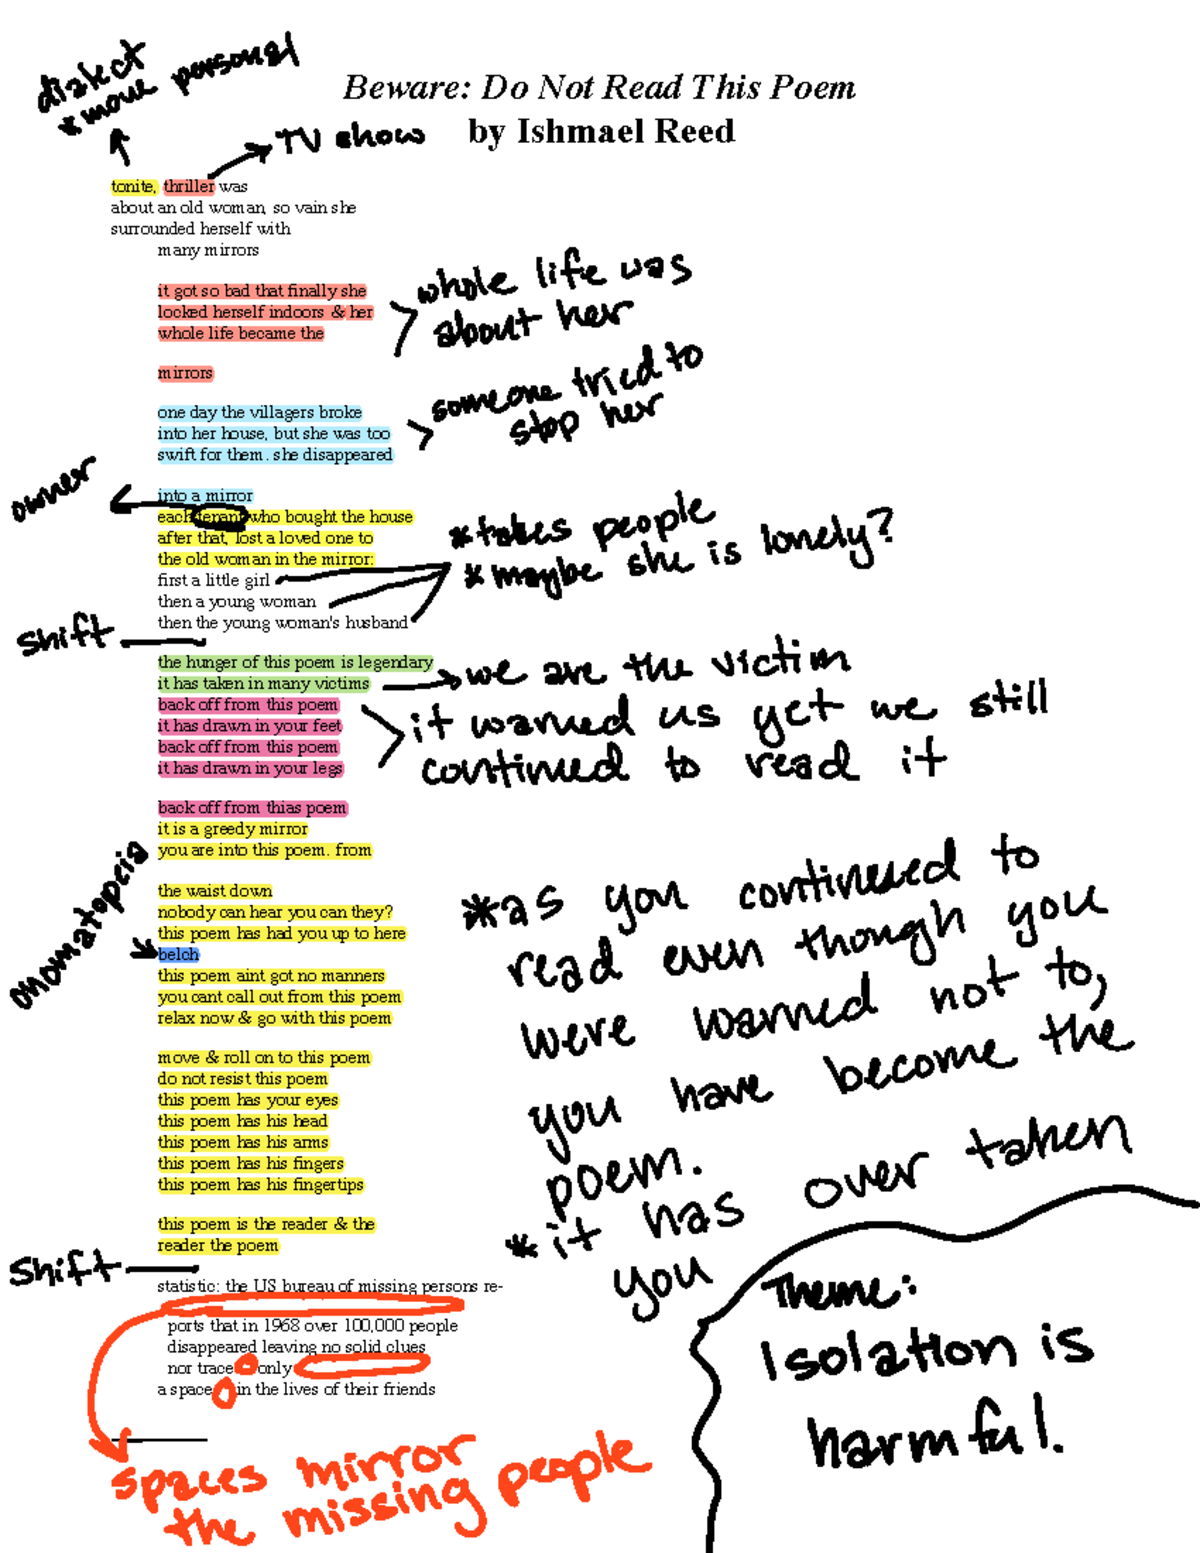 dialect
*more personal
Beware: Do Not Read This Poem
by Ishmael Reed
TV show
tonite, thriller was
about an old woman, so vain she
surrounded herself with
many mirrors
it got so bad that finally she
locked herself indoors & her
whole life became the
whole life was
about her
mirrors
someone tried to
stop her
one day the villagers broke
into her house, but she was too
swift for them. she disappeared
owner
into a mirror
each tenant who bought the house
after that, lost a loved one to
the old woman in the mirror:
first a little girl
then a young woman
then the young woman's husband
*takes people
*maybe she is lonely?
shift
the hunger of this poem is legendary
it has taken in many victims
we are the victim
back off from this poem
it has drawn in your feet
back off from this poem
it has drawn in your legs
it warned us yet we still
continued to read it
back off from thias poem
it is a greedy mirror
you are into this poem. from
onomatopeia
the waist down
nobody can hear you can they?
this poem has had you up to here
belch
this poem aint got no manners
you cant call out from this poem
relax now & go with this poem
move & roll on to this poem
do not resist this poem
this poem has your eyes
this poem has his head
this poem has his arms
this poem has his fingers
this poem has his fingertips
this poem is the reader & the
reader the poem
*as you continued to
read even though you
were warned not to,
you have become the
poem.
*it has over taken
you
Shift
statistic: the US bureau of missing persons re-
ports that in 1968 over 100,000 people
disappeared leaving no solid clues
nor trace only
a space in the lives of their friends
spaces mirror
the missing people
Theme:
Isolation is
harmful.